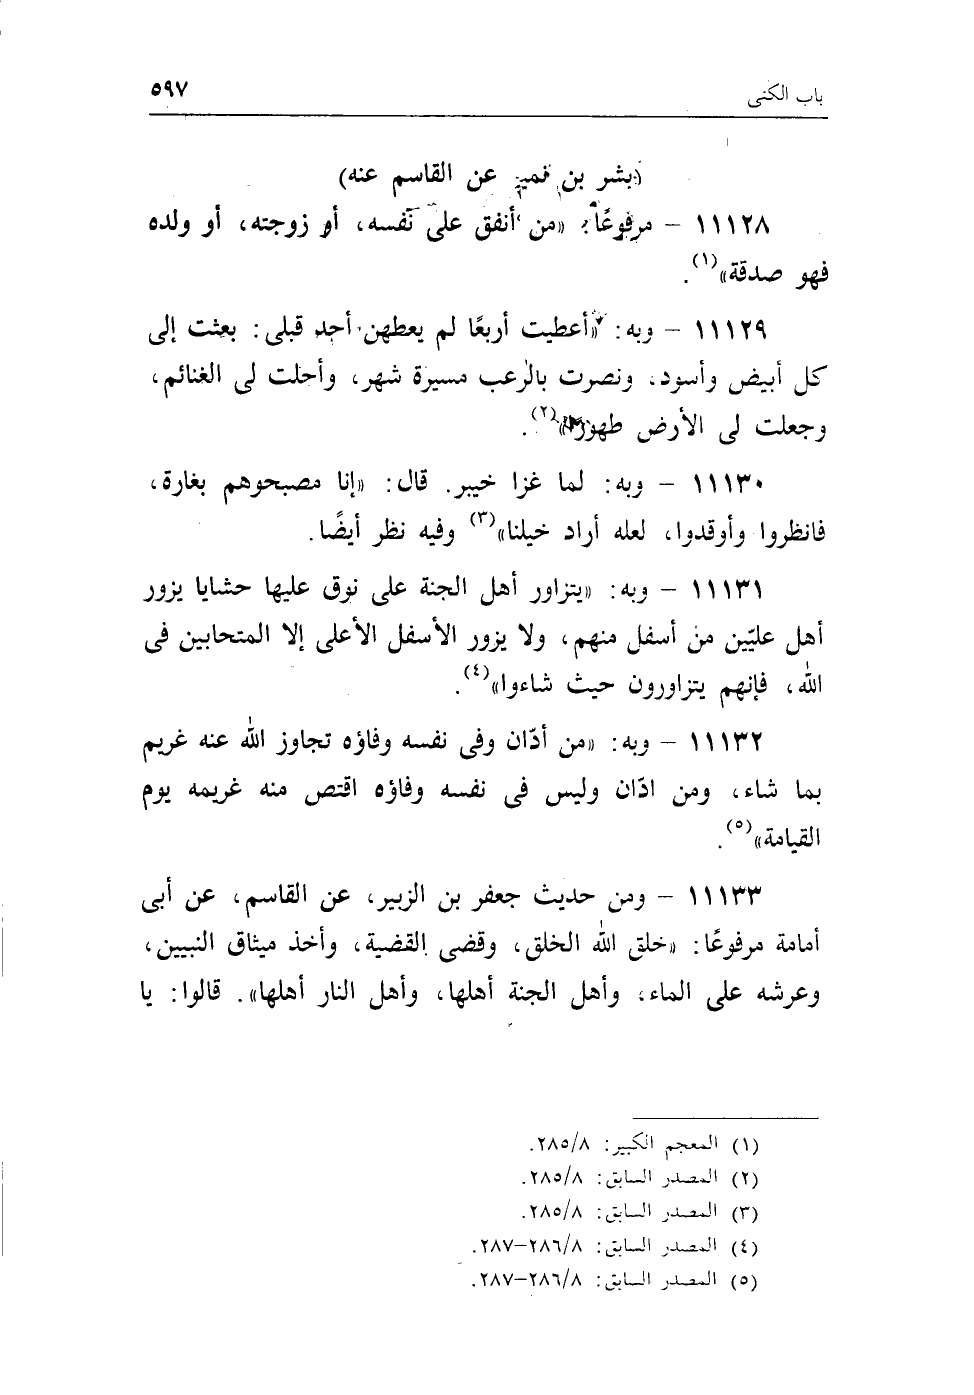 باب الكنى ٥٩٧
(بشر بن نمير عن القاسم عنه)
١١١٢٨ – مرفوعًا: «من أنفق على نفسه، أو زوجته، أو ولده
فهو صدقة»(١).
١١١٢٩ – وبه: «أعطيت أربعًا لم يعطهن أحد قبلى: بعثت إلى
كل أبيض وأسود، ونصرت بالرعب مسيرة شهر، وأحلت لى الغنائم،
وجعلت لى الأرض طهورًا»(٢).
١١١٣٠ – وبه: لما غزا خيبر. قال: «إنا مصبحوهم بغارة،
فانظروا وأوقدوا، لعله أراد خيلنا»(٣) وفيه نظر أيضًا.
١١١٣١ – وبه: «يتزاور أهل الجنة على نوق عليها حشايا يزور
أهل عليّين من أسفل منهم، ولا يزور الأسفل الأعلى إلا المتحابين فى
الله، فإنهم يتزاورون حيث شاءوا»(٤).
١١١٣٢ – وبه: «من أدّان وفى نفسه وفاؤه تجاوز الله عنه غريم
بما شاء، ومن ادّان وليس فى نفسه وفاؤه اقتص منه غريمه يوم
القيامة»(٥).
١١١٣٣ – ومن حديث جعفر بن الزبير، عن القاسم، عن أبى
أمامة مرفوعًا: «خلق الله الخلق، وقضى القضية، وأخذ ميثاق النبيين،
وعرشه على الماء، وأهل الجنة أهلها، وأهل النار أهلها». قالوا: يا
(١) المعجم الكبير: ٢٨٥/٨.
(٢) المصدر السابق: ٢٨٥/٨.
(٣) المصدر السابق: ٢٨٥/٨.
(٤) المصدر السابق: ٢٨٦/٨–٢٨٧.
(٥) المصدر السابق: ٢٨٦/٨–٢٨٧.